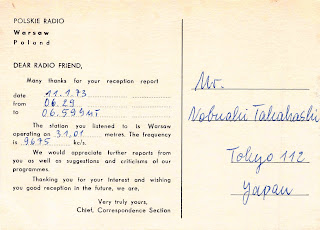 POLSKIE RADIO
Warsaw
Poland
DEAR RADIO FRIEND,
Many thanks for your reception report
date 11.1.73
from 06.29
to 06.59 GMT
The station you listened to is Warsaw
operating on 31,01 metres. The frequency
is 9675 kc/s.
We would appreciate further reports from
you as well as suggestions and criticisms of our
programmes.
Thanking you for your interest and wishing
you good reception in the future, we are,
Very truly yours,
Chief, Correspondence Section
Mr.
Nobuaki Takahashi
Tokyo 112
Japan